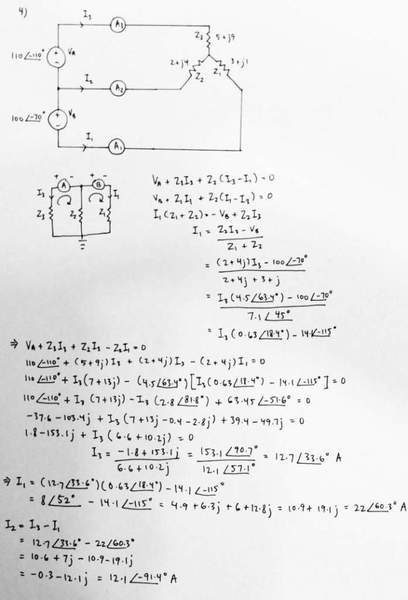 4)
I₃
A₃
Z₃ 5+j9
110∠-110°
+
V_A
-
I₂
A₂
2+j4
Z₂
Z₁
3+j1
100∠-70°
+
V_B
-
I₁
A₁
+ A -
+ B -
I₃
I₁
Z₃
Z₂
Z₁
V_A + Z₃I₃ + Z₂(I₃-I₁) = 0
V_B + Z₁I₁ + Z₂(I₁-I₃) = 0
I₁(Z₁+Z₂) = -V_B + Z₂I₃
I₁ = (Z₂I₃ - V_B)/(Z₁ + Z₂)
= ((2+4j)I₃ - 100∠-70°)/(2+4j + 3+j)
= (I₃(4.5∠63.4°) - 100∠-70°)/(7.1∠45°)
= I₃(0.63∠18.4°) - 14.1∠-115°
⇒ V_A + Z₃I₃ + Z₂I₃ - Z₂I₁ = 0
110∠-110° + (5+9j)I₃ + (2+4j)I₃ - (2+4j)I₁ = 0
110∠-110° + I₃(7+13j) - (4.5∠63.4°)[I₃(0.63∠18.4°) - 14.1∠-115°] = 0
110∠-110° + I₃(7+13j) - I₃(2.8∠81.8°) + 63.45∠-51.6° = 0
-37.6 - 103.4j + I₃(7+13j-0.4-2.8j) + 39.4 - 49.7j = 0
1.8 - 153.1j + I₃(6.6+10.2j) = 0
I₃ = (-1.8 + 153.1j)/(6.6+10.2j) = (153.1∠90.7°)/(12.1∠57.1°) = 12.7∠33.6° A
⇒ I₁ = (12.7∠33.6°)(0.63∠18.4°) - 14.1∠-115°
= 8∠52° - 14.1∠-115° = 4.9 + 6.3j + 6 + 12.8j = 10.9 + 19.1j = 22∠60.3° A
I₂ = I₃ - I₁
= 12.7∠33.6° - 22∠60.3°
= 10.6 + 7j - 10.9 - 19.1j
= -0.3 - 12.1j = 12.1∠-91.4° A